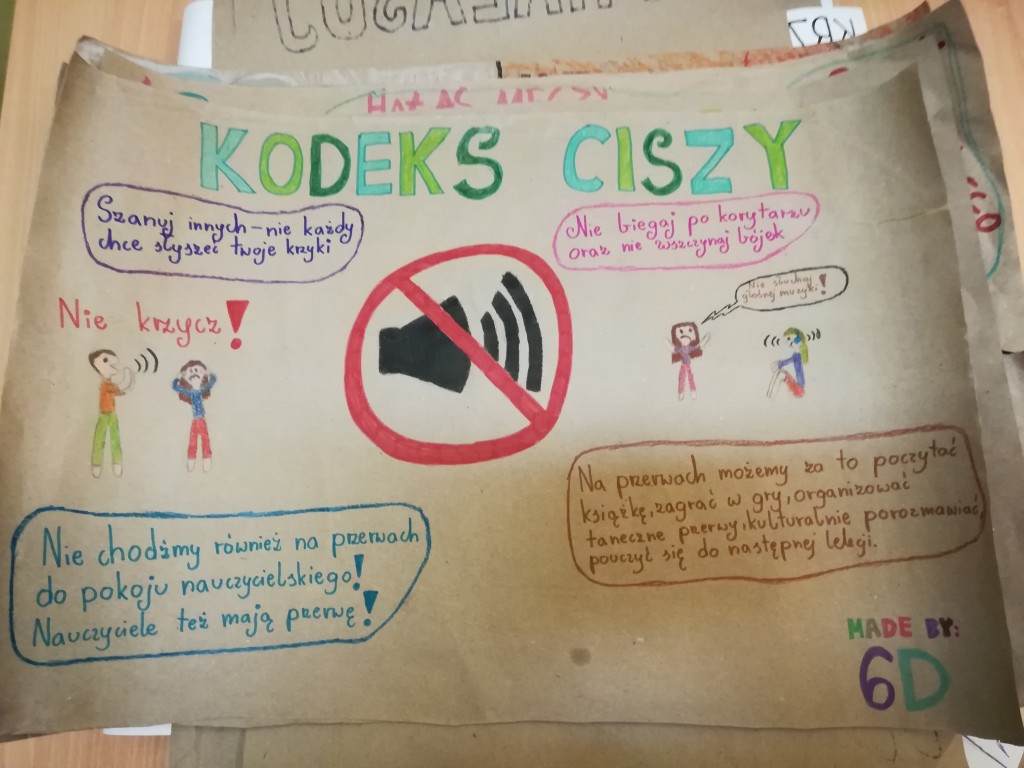 KODEKS CISZY
Szanuj innych - nie każdy
chce słyszeć twoje krzyki
Nie biegaj po korytarzu
oraz nie wszczynaj bójek
Nie krzycz!
Nie słuchaj
głośnej muzyki!
Nie chodźmy również na przerwach
do pokoju nauczycielskiego!
Nauczyciele też mają przerwę!
Na przerwach możemy za to poczytać
książkę, zagrać w gry, organizować
taneczne przerwy, kulturalnie porozmawiać,
pouczyć się do następnej lekcji.
MADE BY:
6D